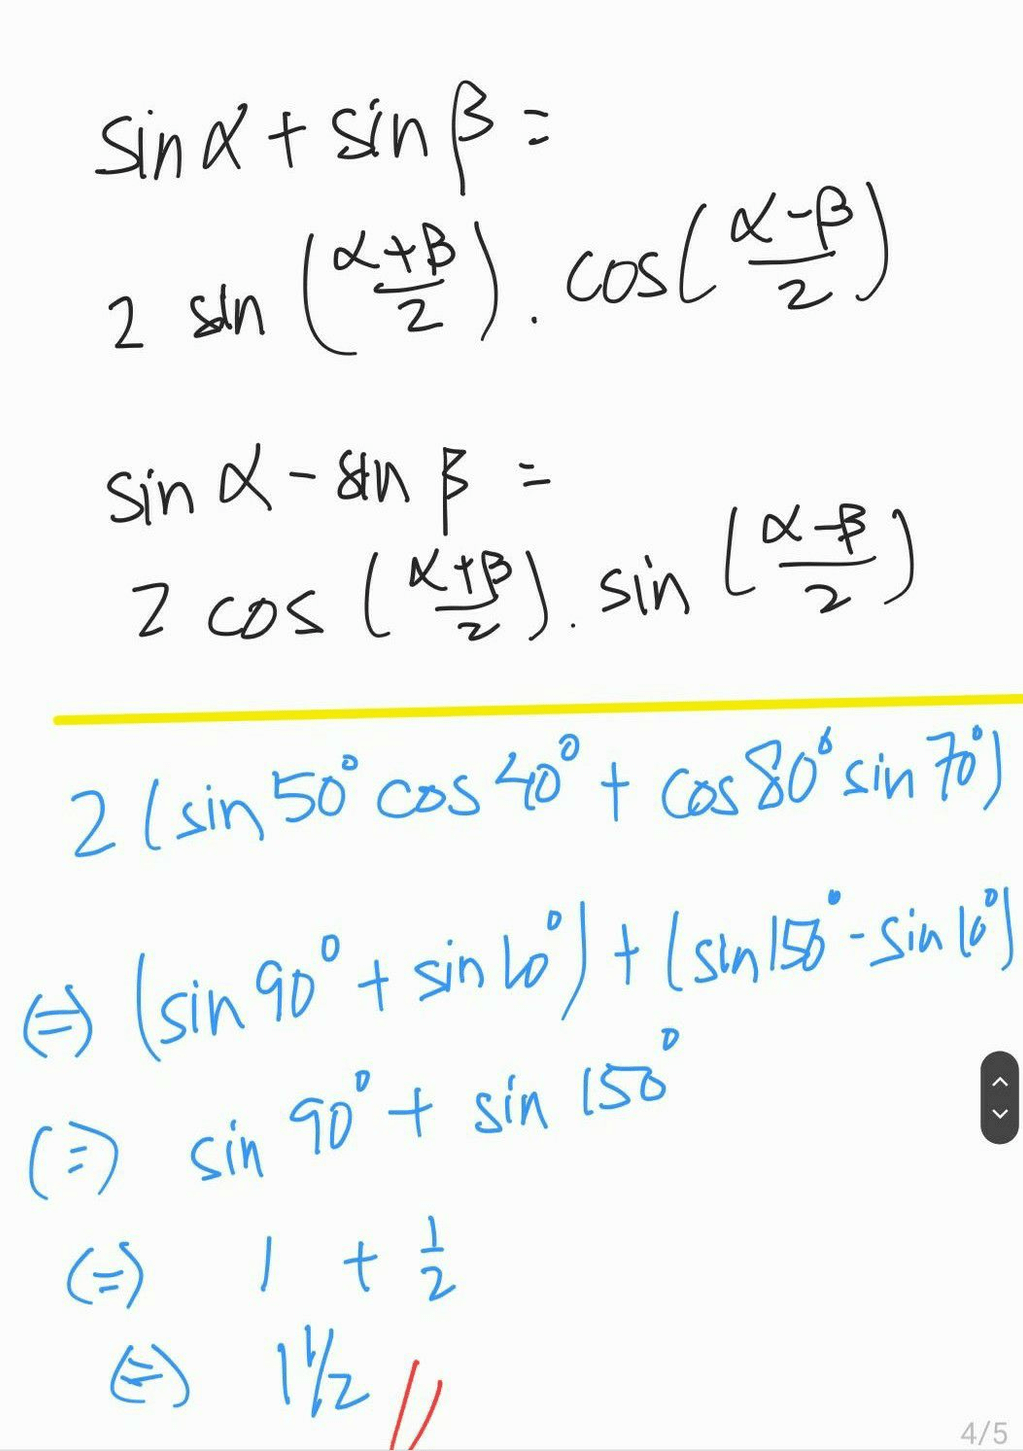 sin α + sin β =
2 sin (α+β/2) . cos (α-β/2)
sin α - sin β =
2 cos (α+β/2) . sin (α-β/2)
2 (sin 50° cos 40° + cos 80° sin 70°)
(=) (sin 90° + sin 10°) + (sin 150° - sin 10°)
(=) sin 90° + sin 150°
(=) 1 + 1/2
(=) 1 1/2 //
4/5